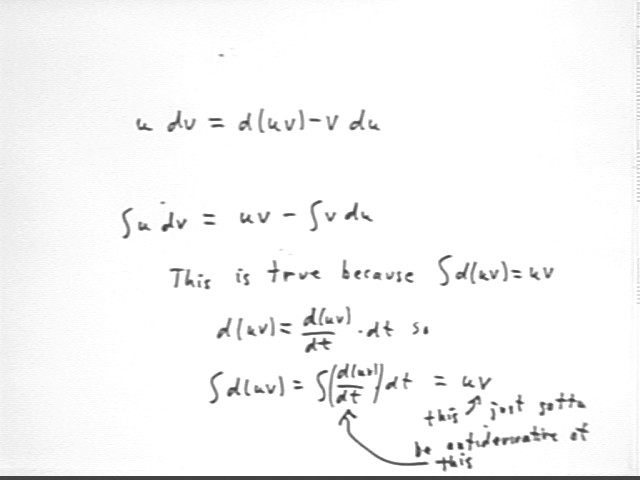 u dv = d(uv) - v du
∫u dv = uv - ∫v du
This is true because ∫d(uv) = uv
d(uv) = d(uv)/dt · dt so
∫d(uv) = ∫(d(uv)/dt)dt = uv
this ↗ just gotta
be antiderivative of
this